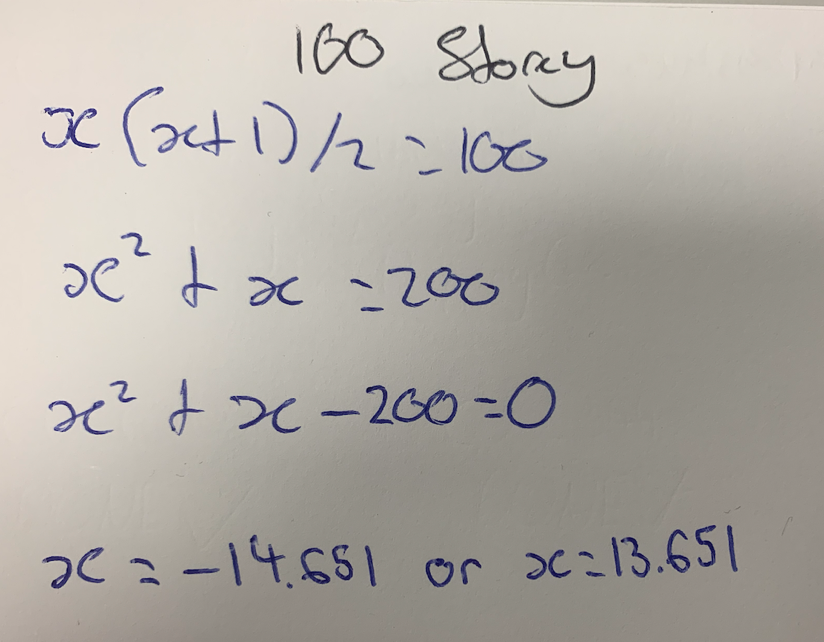 100 Storey
x(x+1)/2=100
x² + x =200
x² + x -200=0
x = -14.651 or x=13.651